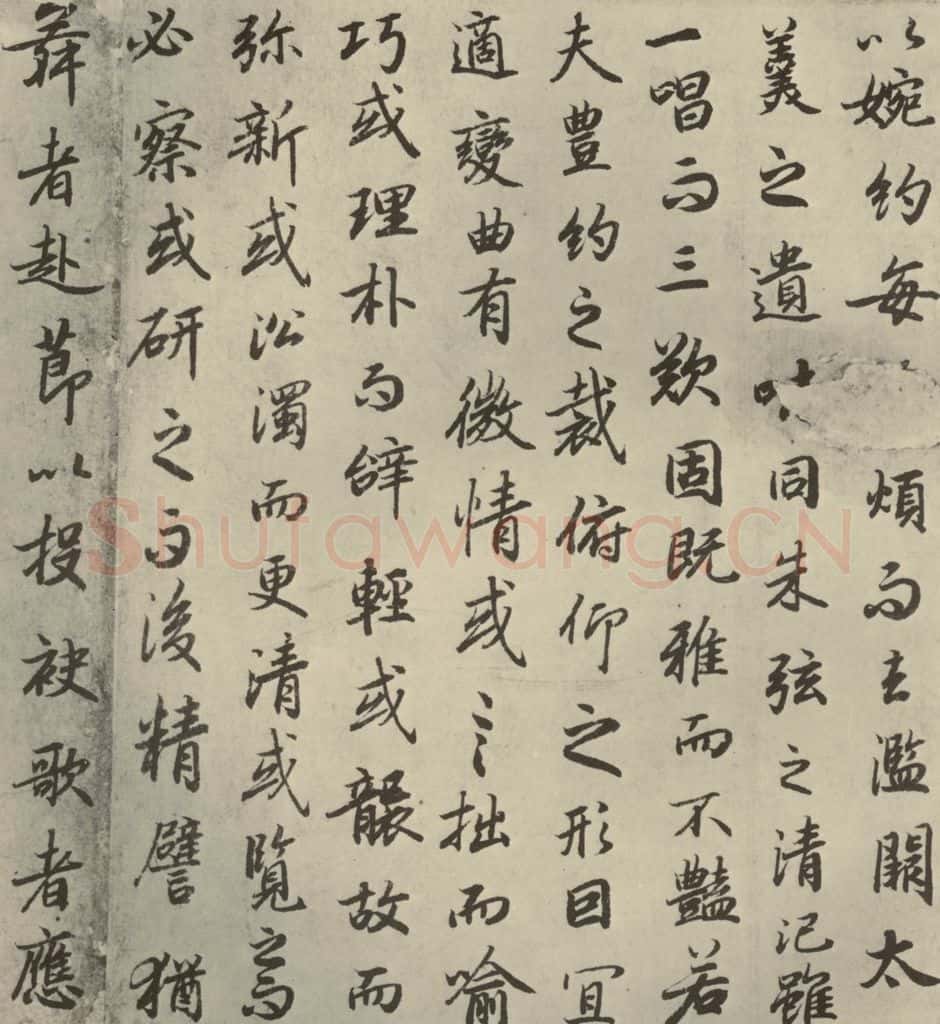 以婉約每煩而去濫闕太
羹之遺同朱弦之清汜雖
一唱而三歎固既雅而不豔若
夫豊約之裁俯仰之形因宜
適變曲有微情或言拙而喻
巧或理朴而辭輕或襲故而
弥新或沿濁而更清或覽之而
必察或研之而後精譬猶
舞者赴節以投袂歌者應
Shufawang.CN